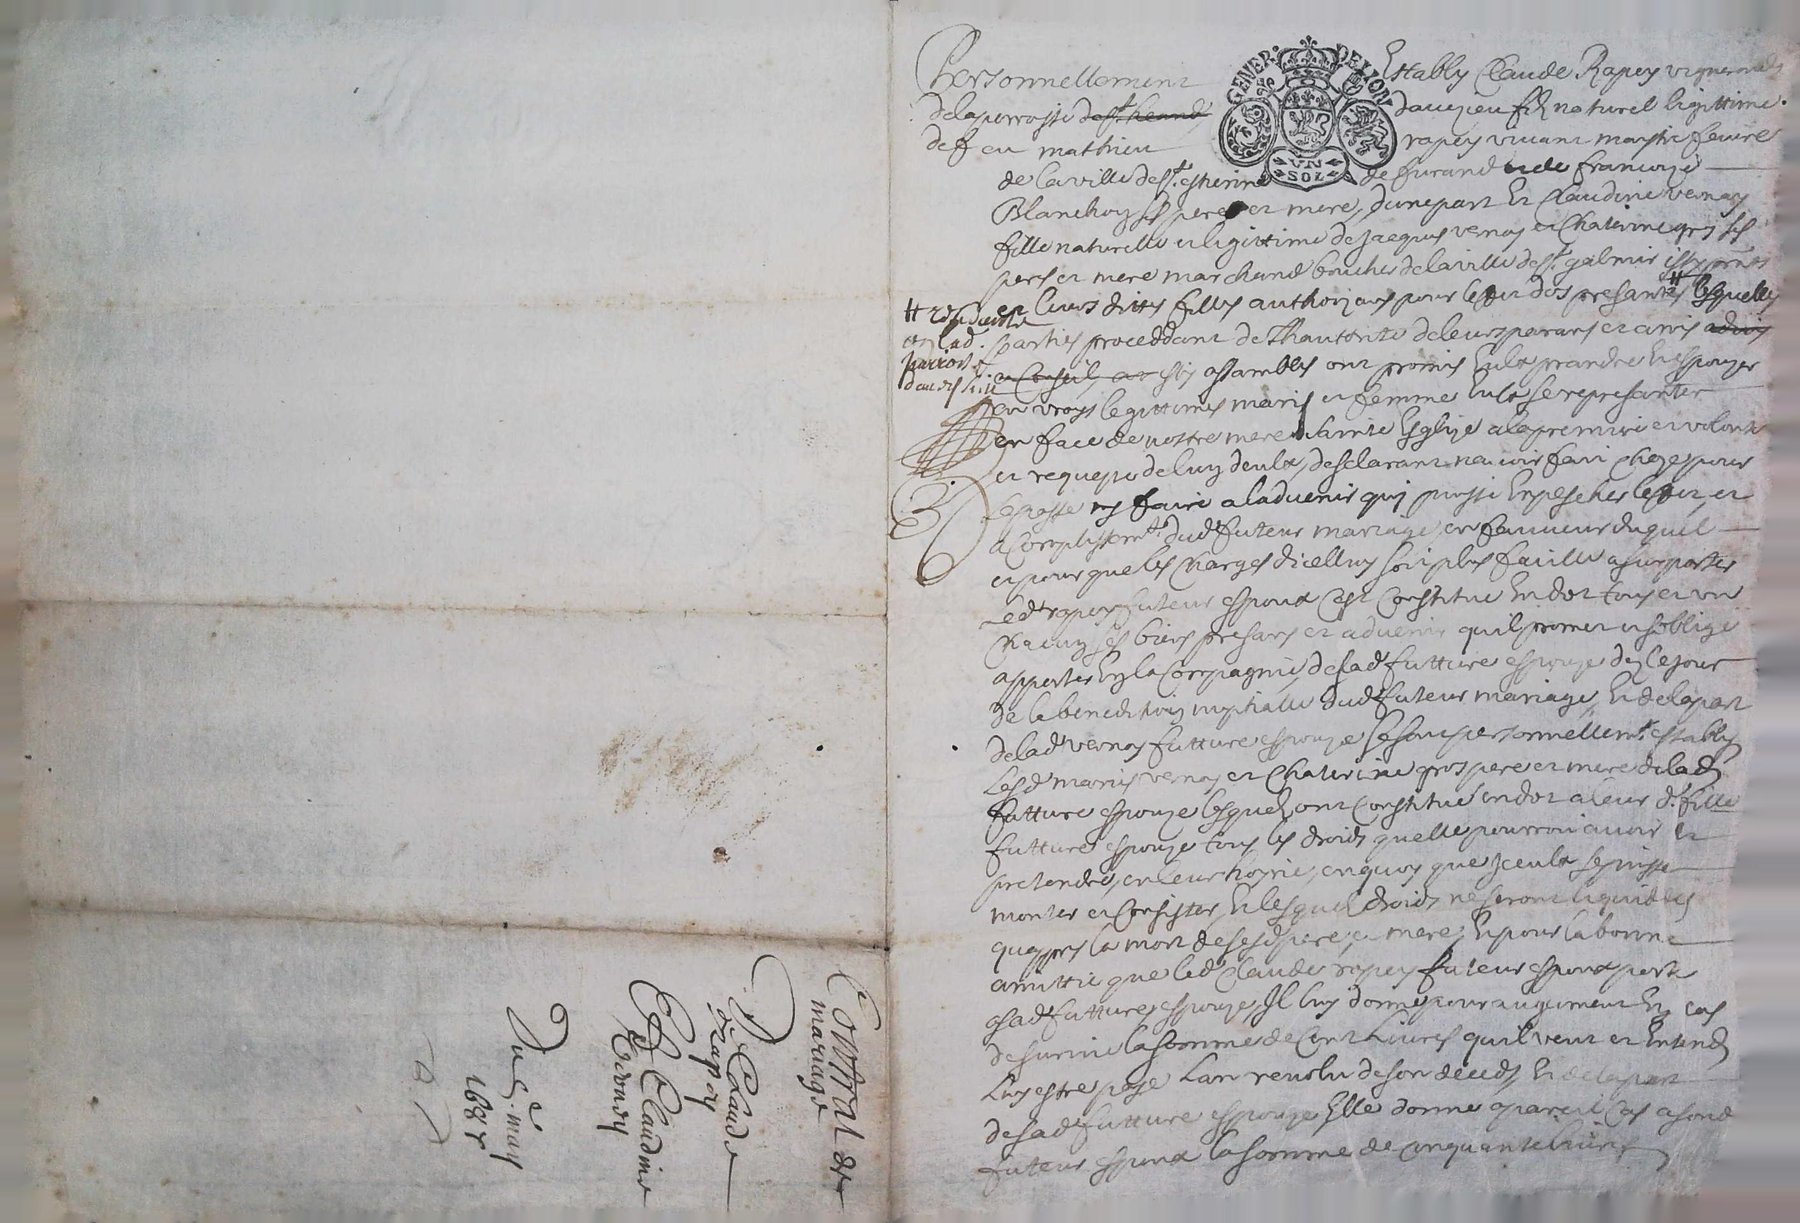 GENER. DE LION
UN
SOL
Personnellement Estably Claude Rapey vigneron
de la parroisse de st heand dauzieu filz naturel legittime
de feu mathieu rapey vivant maistre
de la ville de st estienne de furand et de francoize
Blanchon ses pere et mere, dune part Et Claudine vernay
fille naturelle et legittime de Jacques vernay et Chaterine gros ses
pere et mere marchand boucher de la ville de st galmier
et leurs dittes filles pour des presantes # lesquelles
# residante
parties proceddant de lhauthorite de leurs parans et amis
assambles ont promis Eulx prandre Et espouzer
en vrays legittimes maris et femme Eulx se representer
en face de nostre mere Sainte Esglize a la premiere et volonte
et requeste de luy deulx, desclarant navoir fait choze pour
le passe ny faire a ladvenir quy puisse Enpescher et
acomplissemt. dud futeur mariage, en faveur duquel
et pour que les charges dicelluy soit plus facille a suporter
Led rapey futeur espoux cest Constitue En dot tous et un
chacung ses biens presans et advenir quil promet et soblige
apporter En la Compagnie de lad futture espouze dez le jour
de la benediction nuptialle dud futeur mariage, Et de la part
de lad vernay futture espouze se sont personnellemt. establys
Lesd maries vernay et Chaterine gros pere et mere de lad
futture espouze lesquelz ont Constitue en dot a leur d. fille
futture espouze tous les droidz quelle pourroit avoir et
pretendre, en leur hoyrie, en quoy que Iceulx se puisse
monter et Consister, Et lesquelz droidz ne seront liquiddes
quappres la mort de sesd pere et mere, Et pour la bonne
amittie que led Claude rapey futeur espoux porte
a sad futture espouze, Il luy donne pour augment En cas
de survie la somme de Cent Livres quil veut et Entend
Luy estre paye Lan revolu de son deceds, Et de la part
de sad futture espouze Elle donne a pareil cas a sond
futeur espoux la somme de cinquante livres
Conttrat de
mariage
De Claude
Rapey
Et Claudine
Vernay
Du may